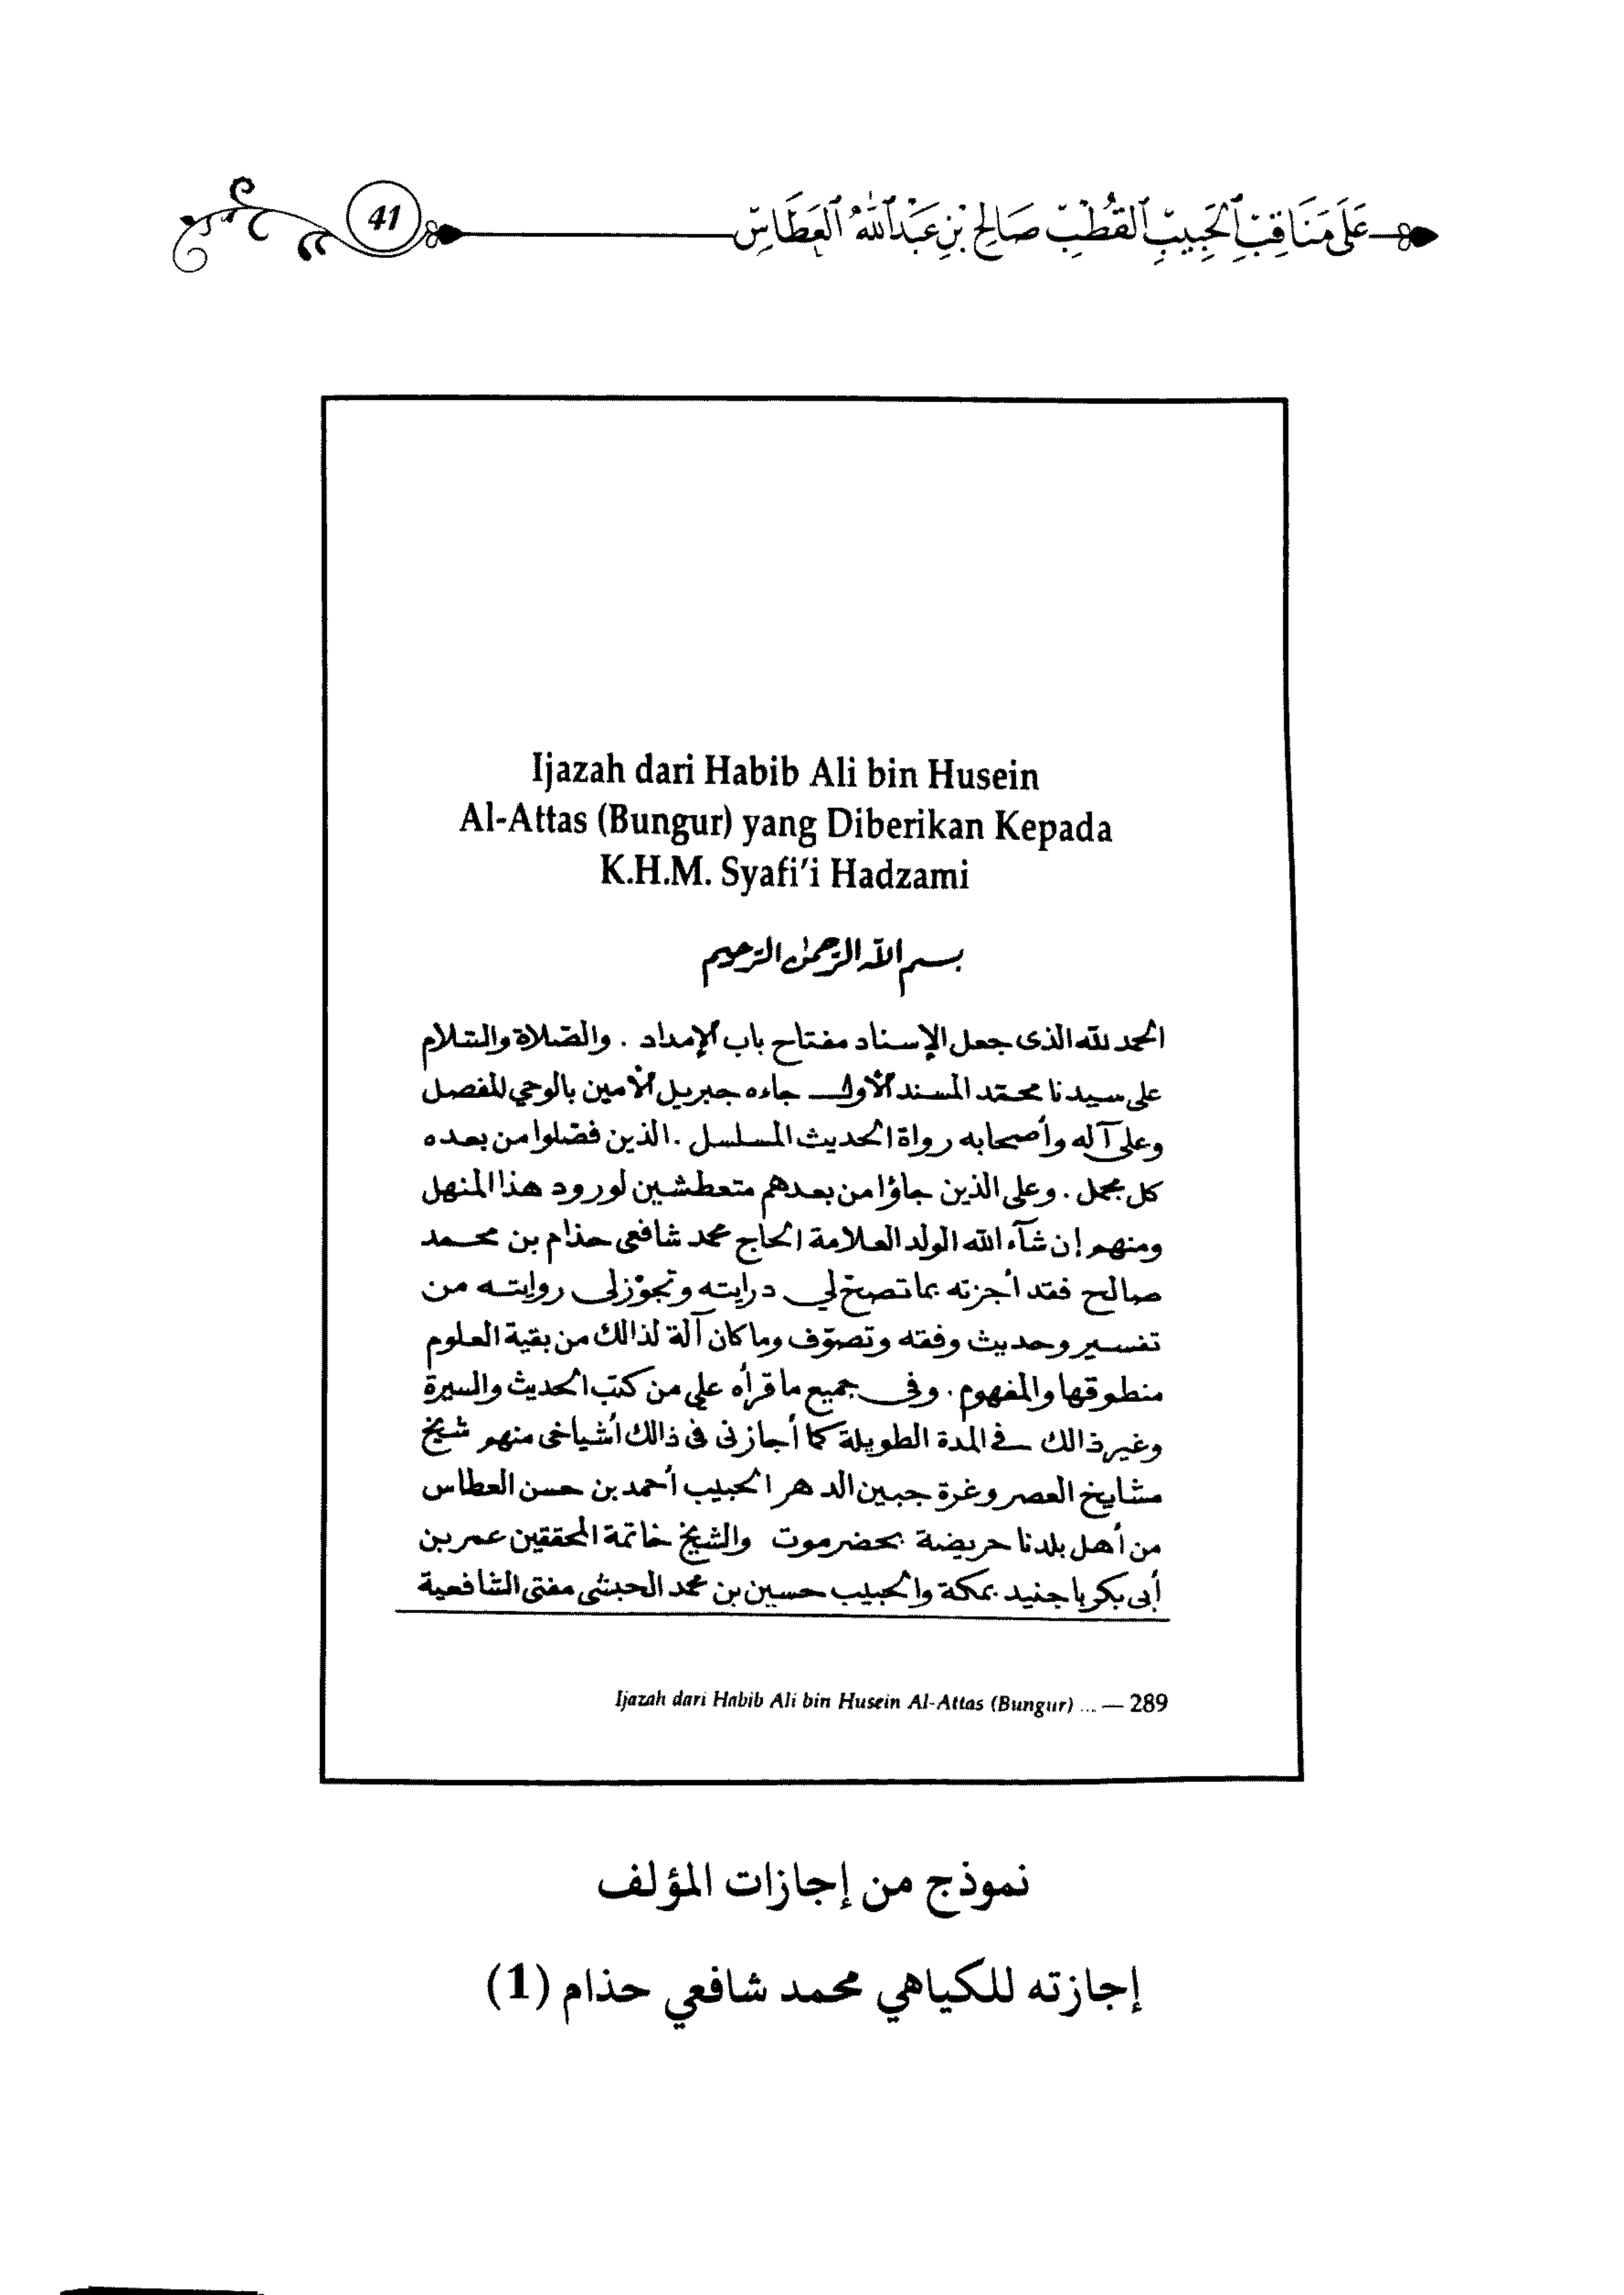 عَلَى مَنَاقِبِ الْحَبِيبِ الْقُطْبِ صَالِحِ بْنِ عَبْدِ اللّٰهِ الْعَطَّاسِ
41
Ijazah dari Habib Ali bin Husein
Al-Attas (Bungur) yang Diberikan Kepada
K.H.M. Syafi'i Hadzami
بسم الله الرحمن الرحيم
الحمد لله الذى جعل الإسناد مفتاح باب الإمداد . والصّلاة والسّلام
على سيدنا محمّد المسند الأول جاءه جبريل الأمين بالوحي المفصل
وعلى آله وأصحابه رواة الحديث المسلسل . الذين فصّلوا من بعده
كل مجمل . وعلى الذين جاؤا من بعدهم متعطشين لورود هذا المنهل
ومنهم إن شآء الله الولد العلامة الحاج محمد شافعى حذام بن محمد
صالح فقد أجزته بما تصحّ لي درايته وتجوّز لى روايته من
تفسير وحديث وفقه وتصوّف وما كان آلة لذالك من بقية العلوم
منطوقها والمفهوم . وفى جميع ما قرأه علي من كتب الحديث والسيرة
وغير ذالك فى المدة الطويلة كما أجازنى فى ذالك أشياخى منهم شيخ
مشايخ العصر وغرة جبين الدهر الحبيب أحمد بن حسن العطاس
من أهل بلدنا حريضة بحضرموت والشيخ خاتمة المحققين عمر بن
أبى بكر باجنيد بمكة والحبيب حسين بن محمد الحبشى مفتى الشافعية
Ijazah dari Habib Ali bin Husein Al-Attas (Bungur) ... — 289
نموذج من إجازات المؤلف
إجازته للكياهي محمد شافعي حذام (1)